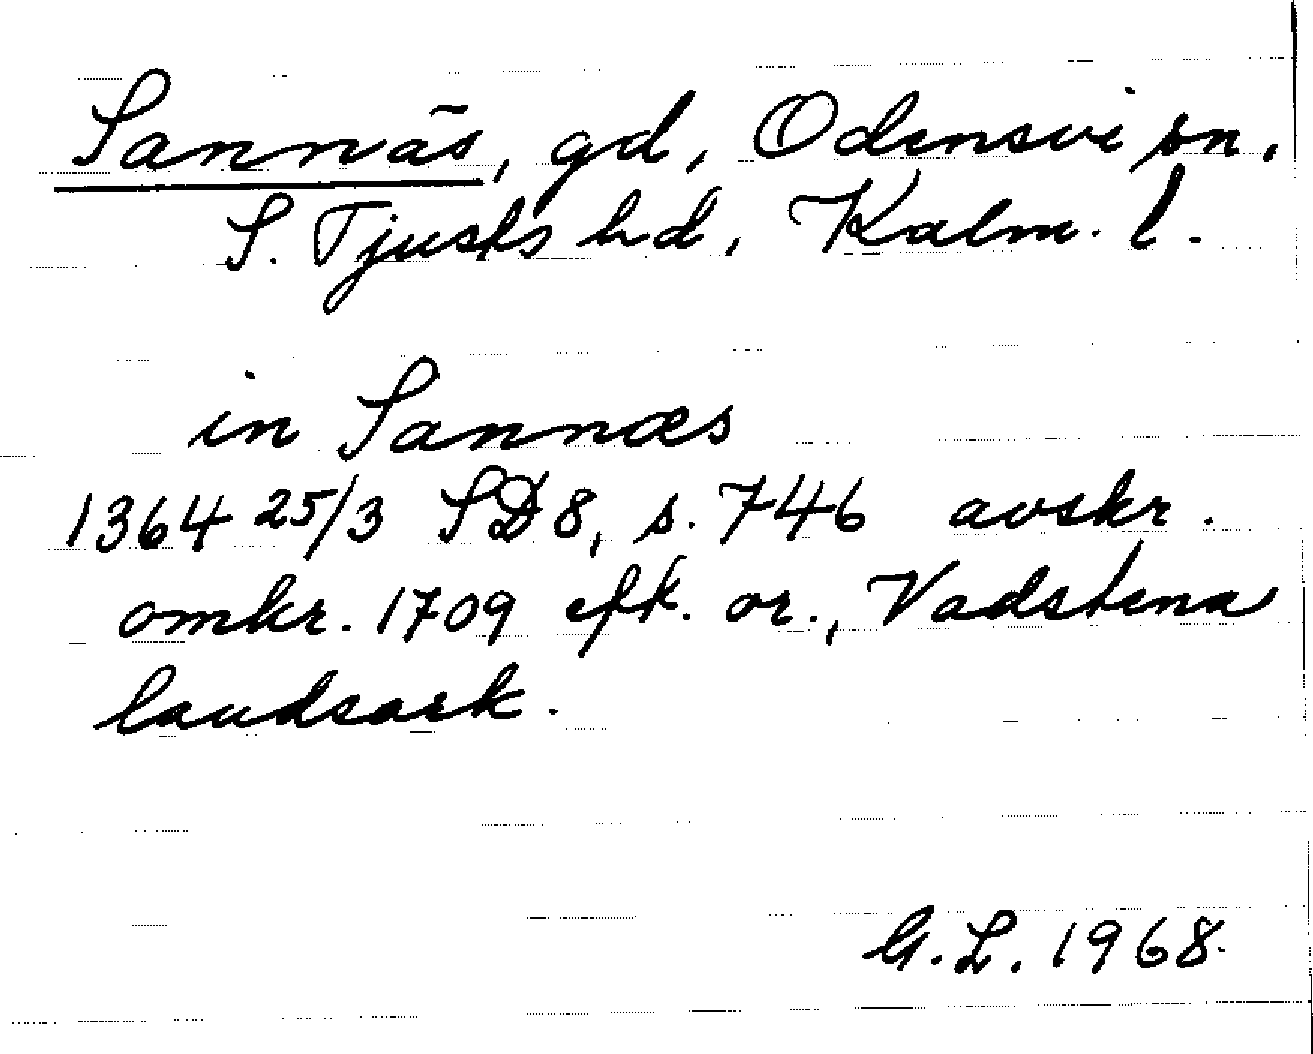 Sannäs, gd, Odensvi sn,
S. Tjusts hd, Kalm. l.
in Sannæs
1364 25/3 SD 8, s. 746 avskr.
omkr. 1709 eft. or., Vadstena
landsark.
G.L. 1968.